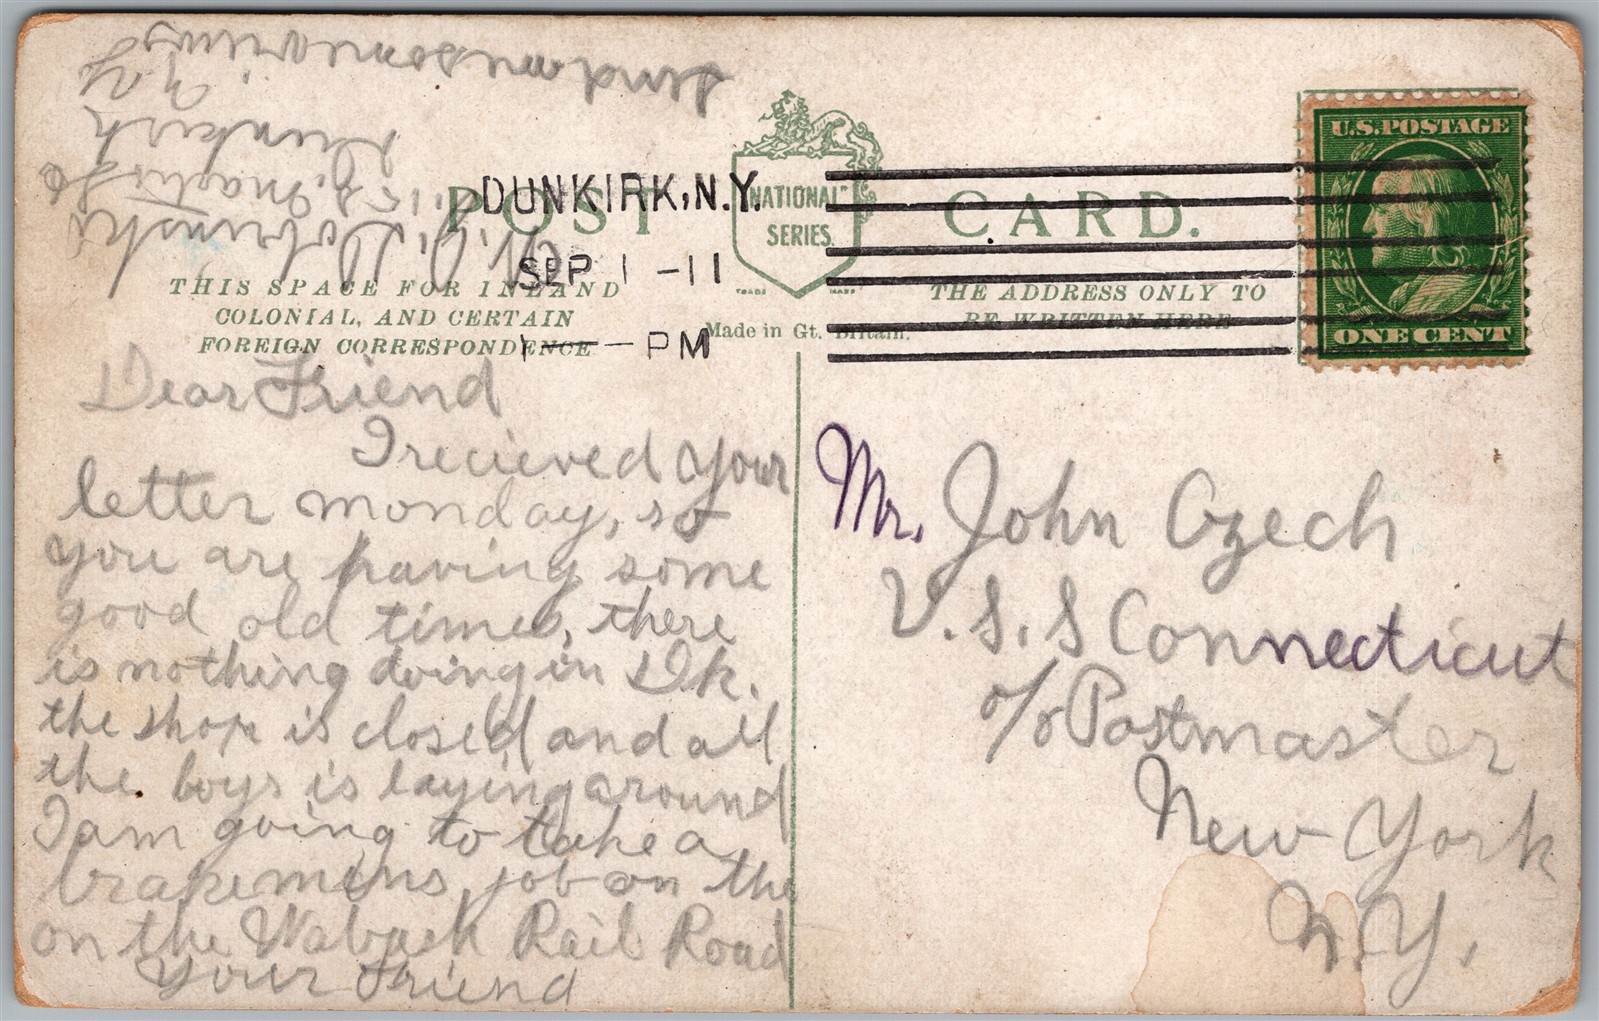 POST CARD.
"NATIONAL"
SERIES.
TRADE MARK
DUNKIRK, N.Y.
SEP 1 -11
1 - PM
U.S. POSTAGE
ONE CENT
THIS SPACE FOR INLAND
COLONIAL, AND CERTAIN
FOREIGN CORRESPONDENCE
Made in Gt. Britain.
THE ADDRESS ONLY TO
BE WRITTEN HERE
Dear Friend
I recieved your
letter monday, so
you are having some
good old times, there
is nothing doing in Dk.
the shop is closed and all
the boys is laying around
I am going to take a
brakemens job on the
on the Waback Rail Road
Your Friend
W. J. Dobrinski
15 S. Martin St
Dunkirk
N.Y.
send me some views
Mr. John Czech
U.S.S Connecticut
c/o Postmaster
New York
N.Y.